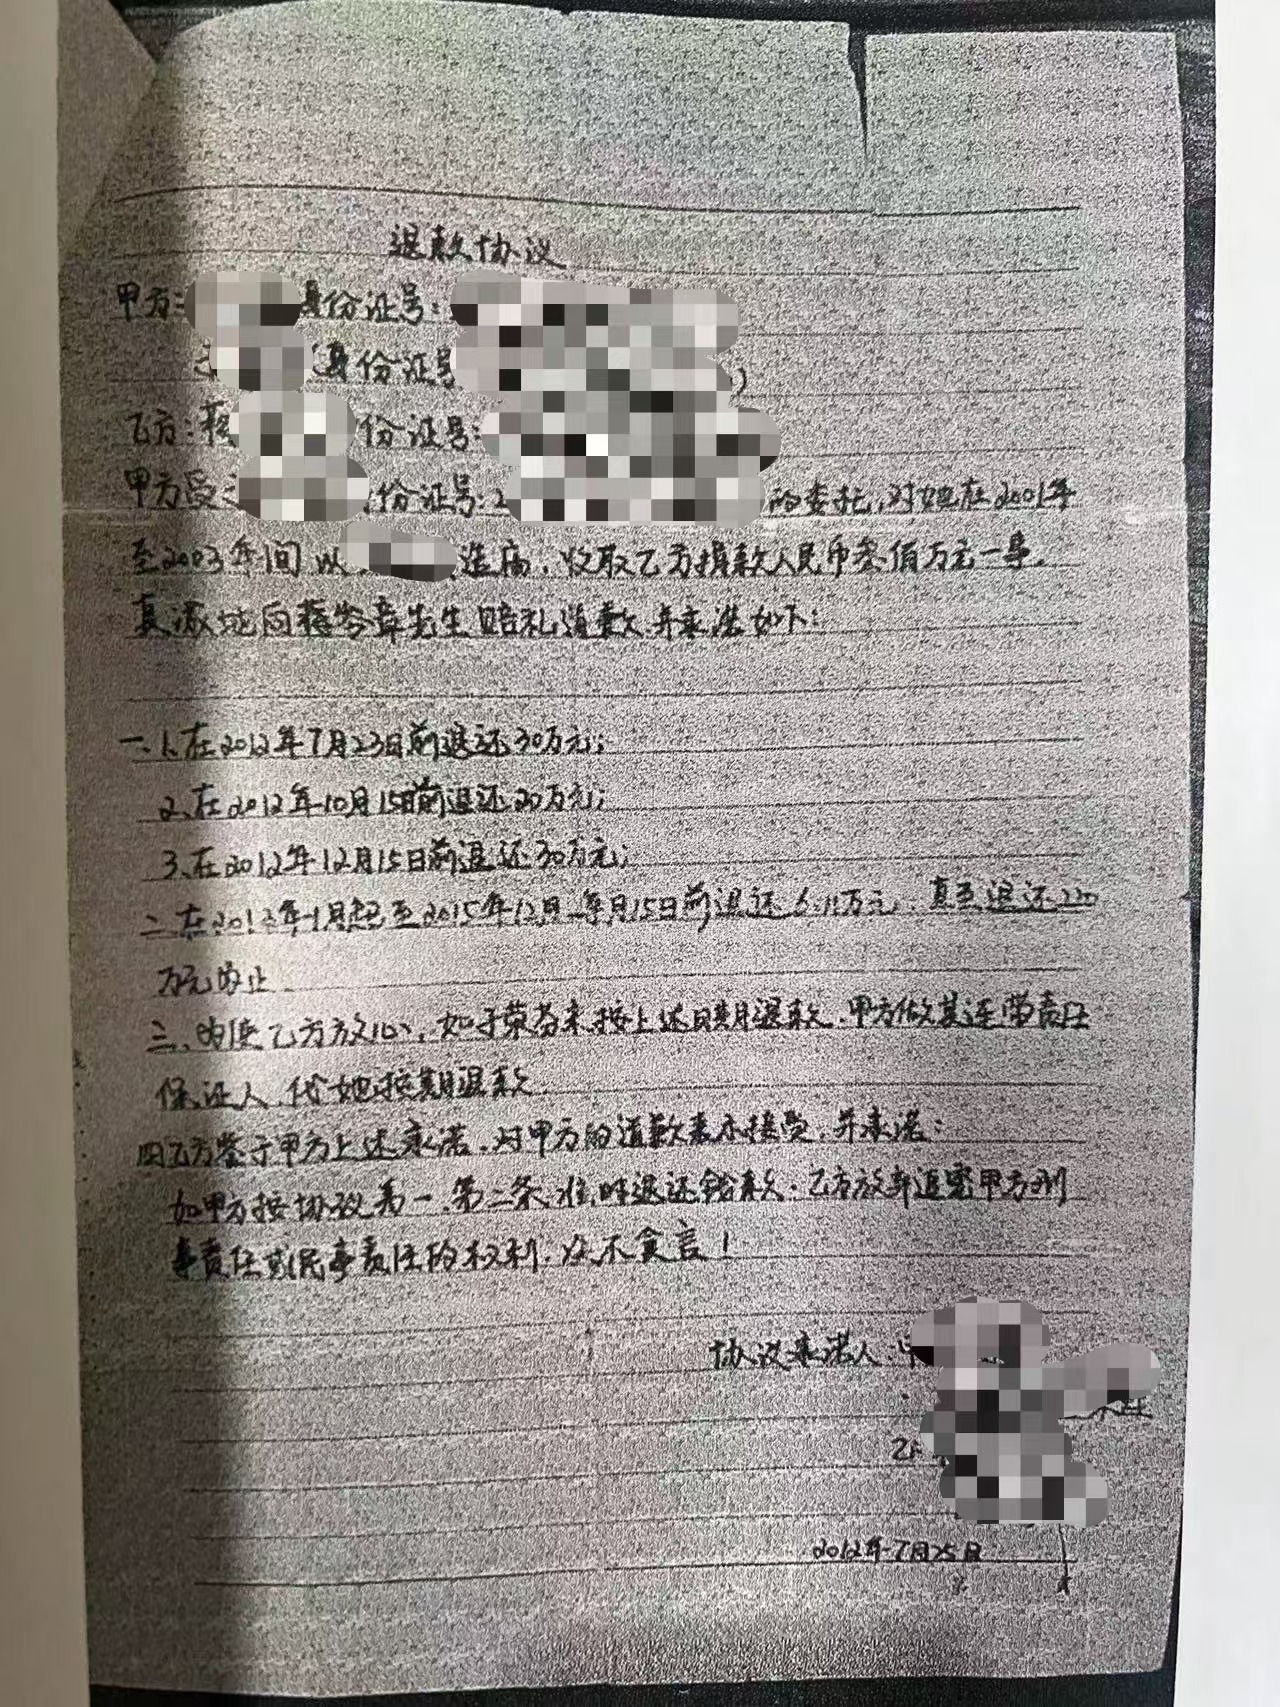 退款协议
甲方: 身份证号:
(身份证号 )
乙方:蒋 份证号:
甲方受 份证号:2 的委托,对她在2001年
至2003年间以 造庙,收取乙方捐款人民币叁佰万元一事。
真诚地向蒋 章先生赔礼道歉,并承诺如下:
一、1、在2012年7月23日前退还30万元;
2、在2012年10月15日前退还20万元;
3、在2012年12月15日前退还30万元;
二、在2013年1月起至2015年12月,每月15日前退还6.11万元,直至退还220
万元为止
三、为使乙方放心,如于荣芬未按上述日期退款,甲方做其连带责任
保证人,代她按期退款
四乙方鉴于甲方上述承诺,对甲方的道歉表示接受,并承诺:
如甲方按协议第一、第二条准时退还余款,乙方放弃追究甲方刑
事责任或民事责任的权利,决不食言!
协议承诺人:甲
乙
2012年7月25日